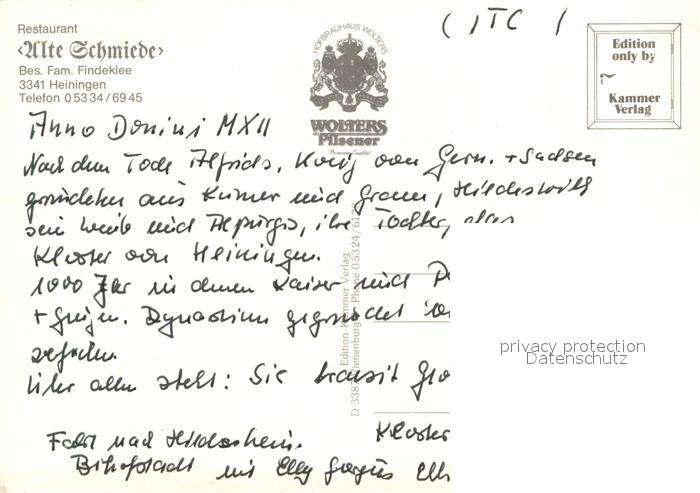 Restaurant
‹Alte Schmiede›
Bes. Fam. Findeklee
3341 Heiningen
Telefon 0 53 34 / 69 45
HOFBRAUHAUS WOLTERS
WOLTERS
Pilsener
Premium Qualität
Edition
only by
Kammer
Verlag
( ITC )
Anno Domini MXII
Nach dem Tode Alfrids, König von Germ. + Sachsen
gründeten aus Kummer und Gram, Hildeswith
sein Weib und Alpurgis, ihre Tochter, das
Kloster von Heiningen.
1000 Jahr in denen Kaiser und
+ gingen. Dynastien gegründet
zerfielen
Über allem steht: Sic transit Glo
Fahrt nach Hildesheim. Kloster
Bischofstadt mit Elly
Edition-Kammer Verlag
Phone 05324/61
privacy protection
Datenschutz